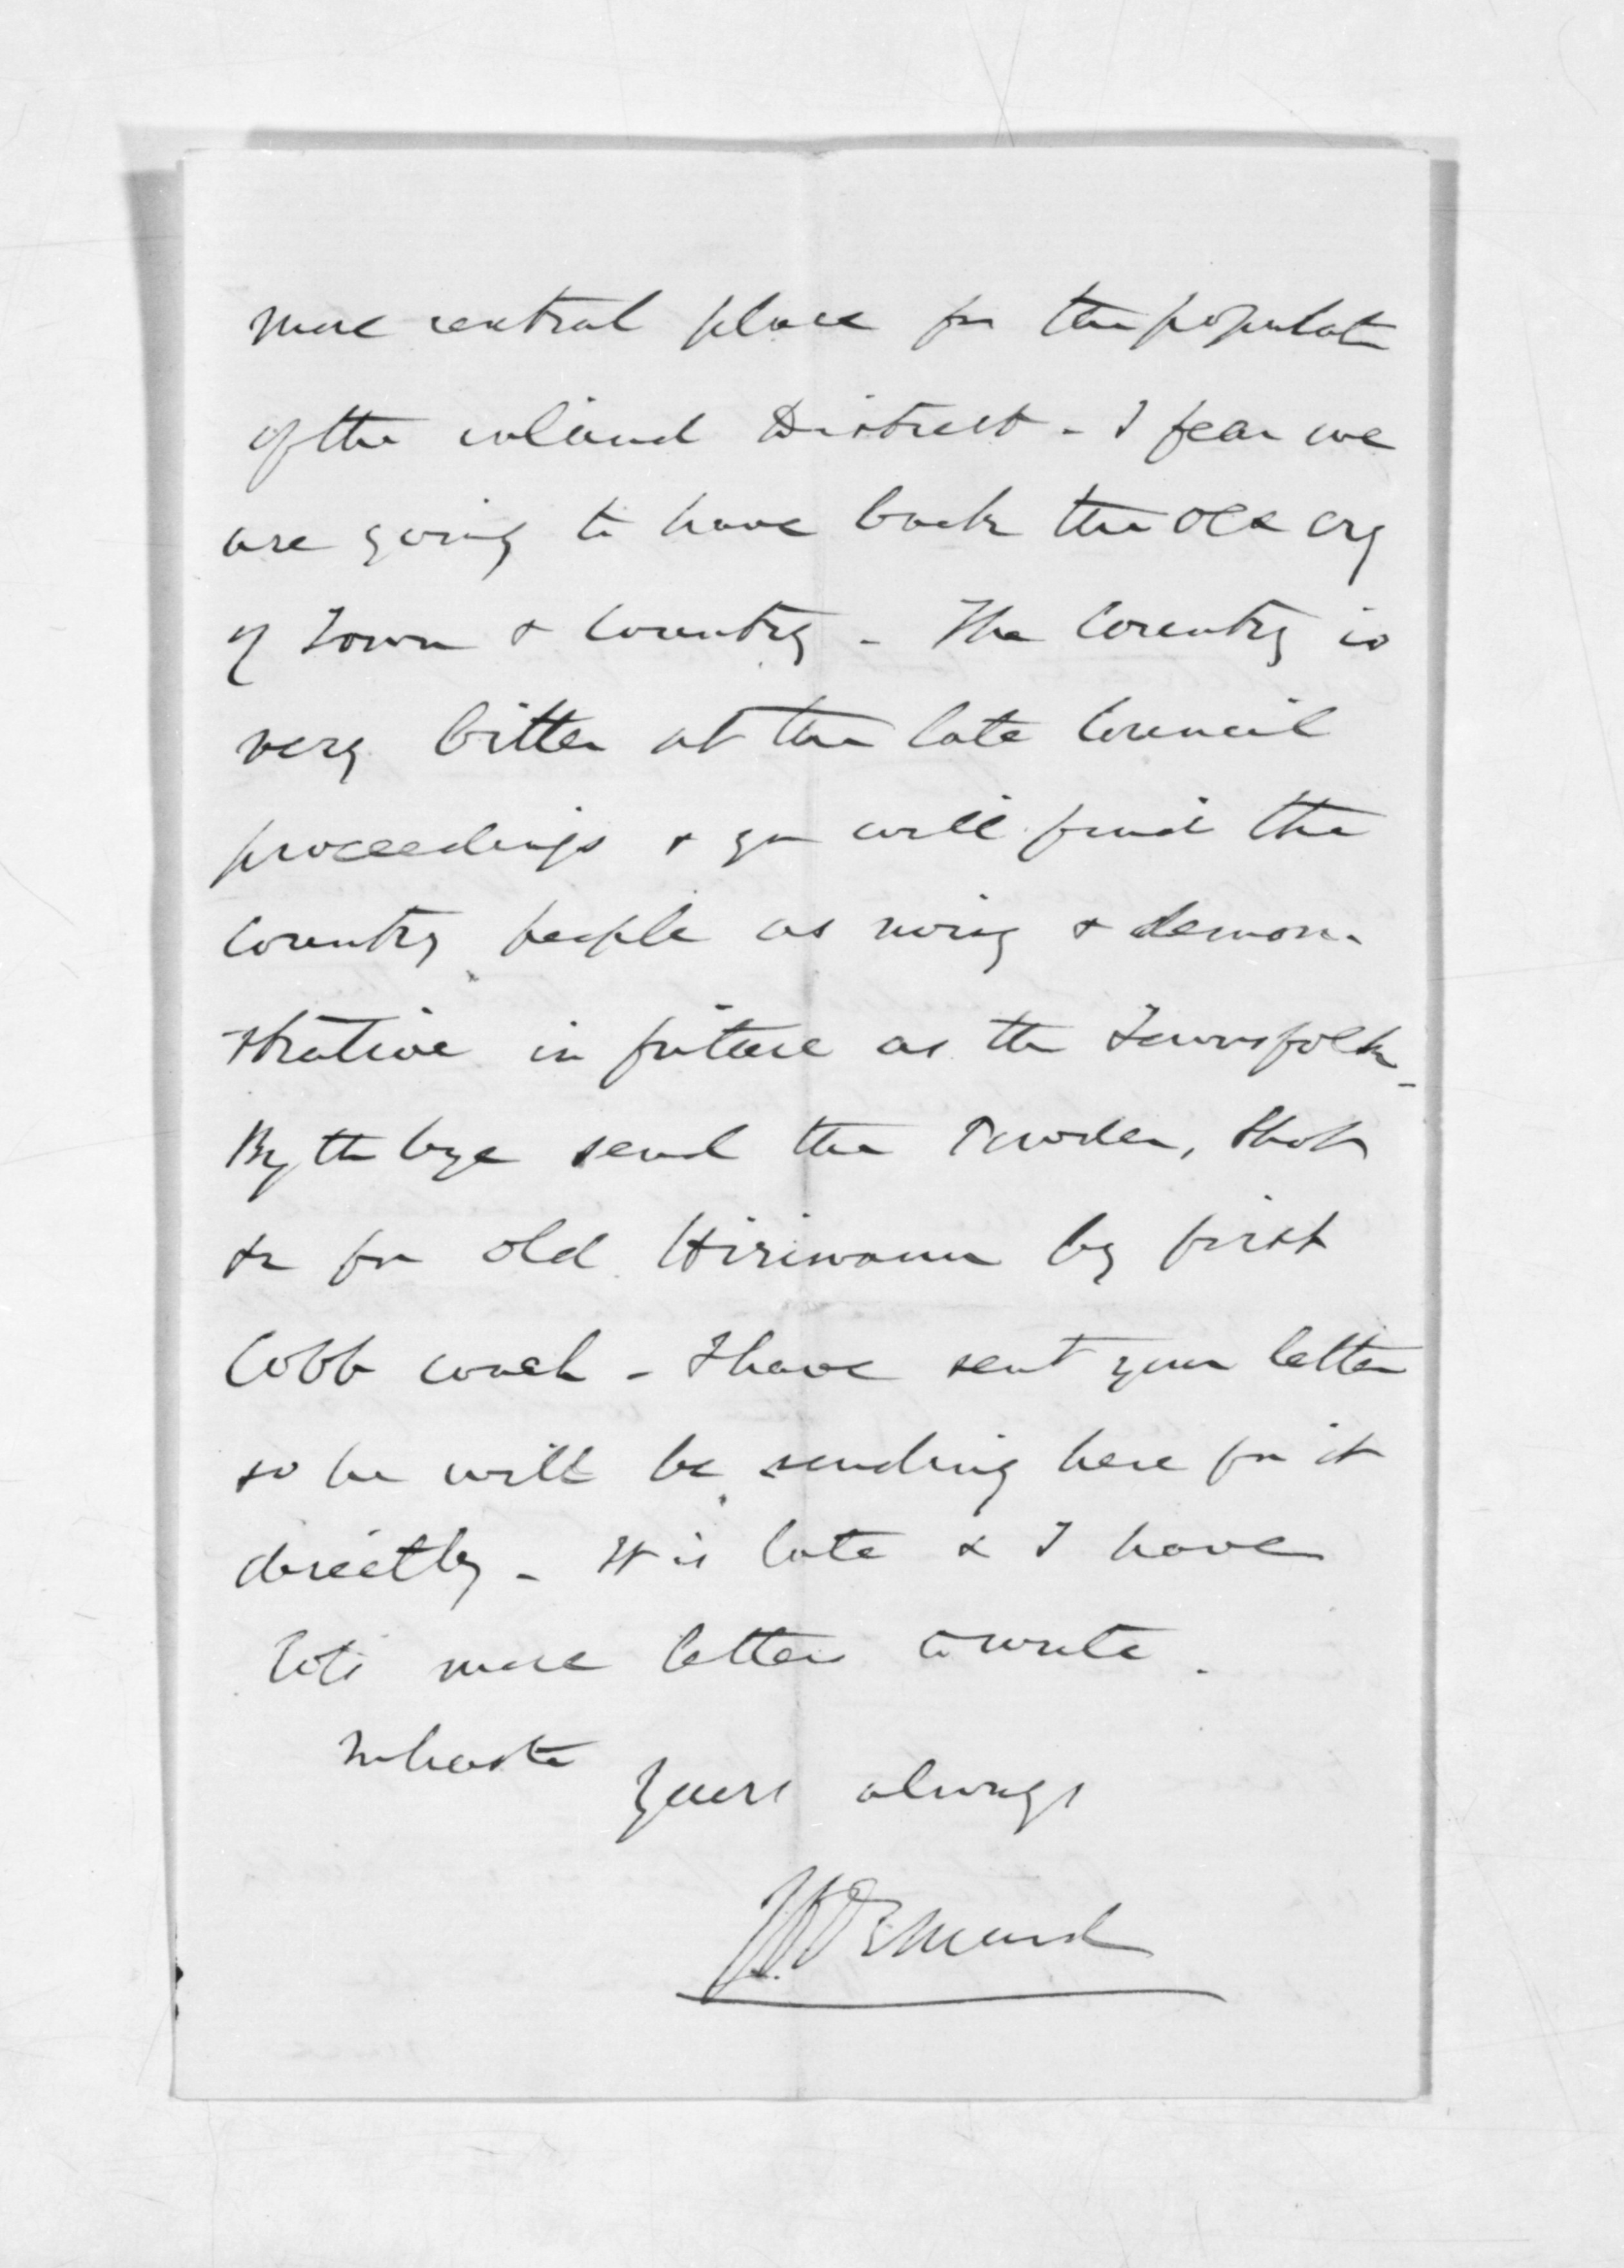 more central place for the populatn
of the inland District - I fear we
are going to have back the old cry
of Town & Country - The Country is
very bitter at the late Council
proceedings & you will find the
Country people as noisy & demon-
-strative in future as the Townsfolk -
By the bye send the Powder, Shot
&c for old Hiriwanu by first
Cobb coach - I have sent your letter
so he will be sending here for it
directly - It is late & I have
lots more letters to write .
In haste
Yours always
JDOrmond